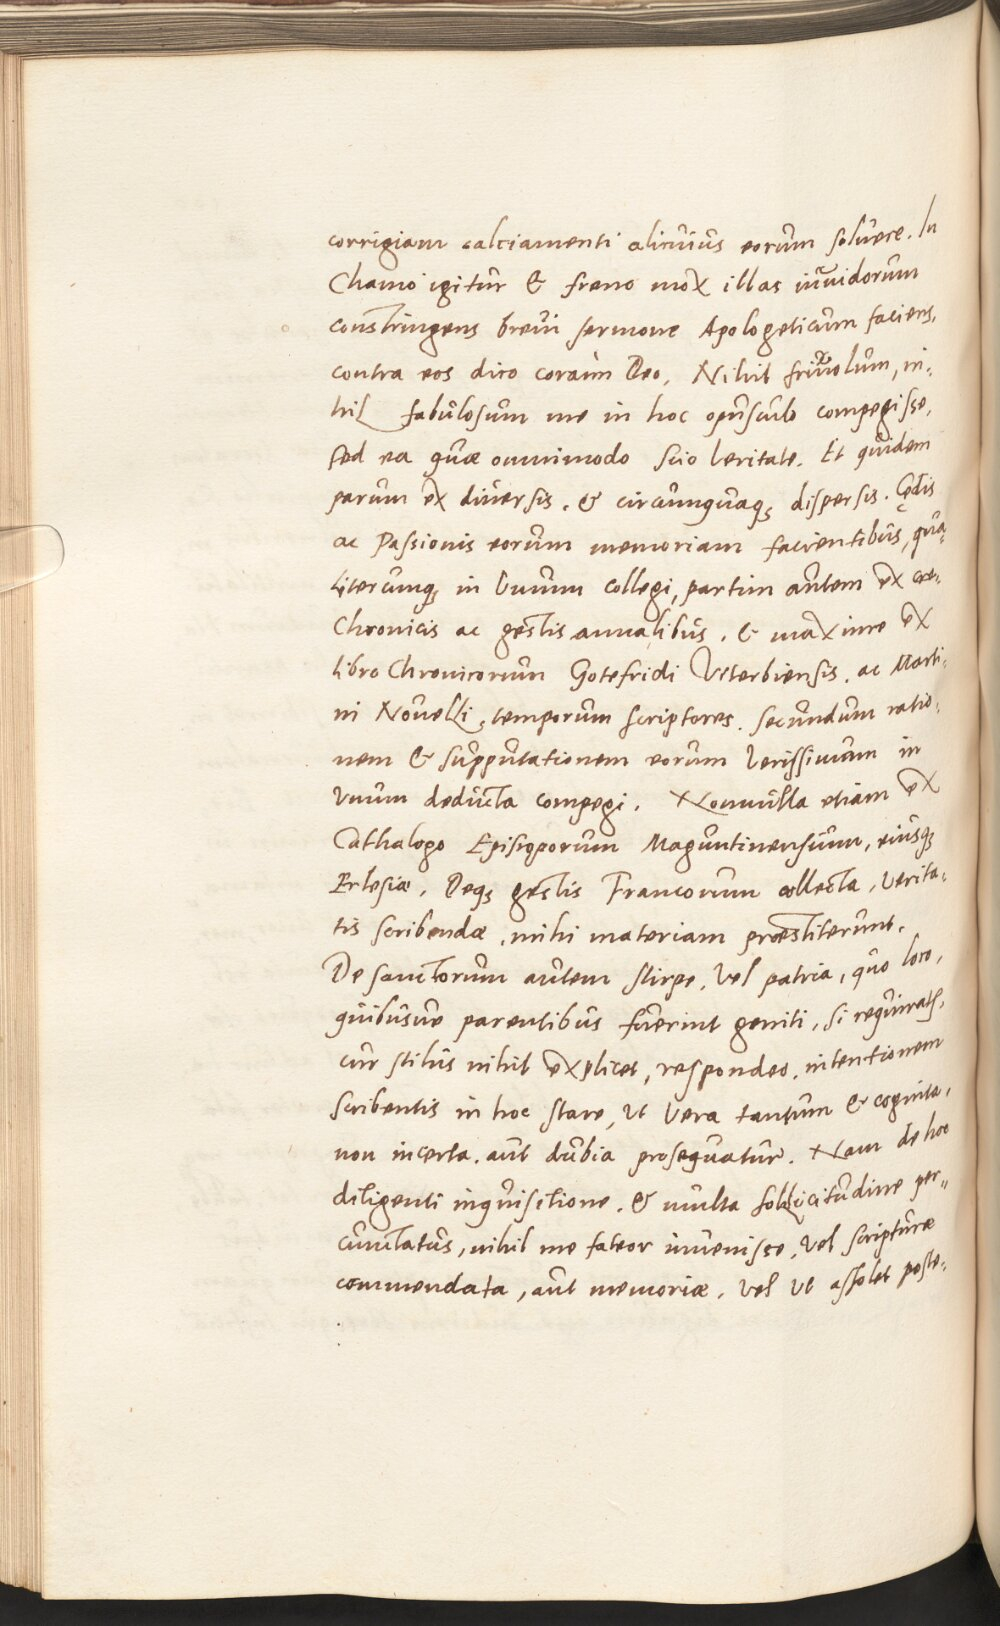 corrigiam calciamenti alicuius eorum soluere. In
Chamo igitur & freno mox illas inuidorum
constringens breui sermone Apologeticum faciens,
contra eos dico coram Deo, Nihil friuolum, ni-
hil fabulosum me in hoc opusculo compegisse,
sed ea quæ omnimodo scio veritate. Et quidem
parum ex diuersis, & circumquaq; dispersis.
ac Passionis eorum memoriam facientibus, qua-
litercumq; in vnum collegi, partim autem ex
Chronicis ac gestis annalibus, & maxime ex
libro Chronicorum Gotefridi Viterbiensis, ac Marti-
ni Nouelli, temporum scriptores, secundum ratio-
nem & supputationem eorum verissimam in
vnum deducta compegi. Nonnulla etiam ex
Cathalogo Episcoporum Maguntinensium, eiusq;
Eclesiæ, Deq; gestis Francorum collecta, verita-
tis scribendæ, mihi materiam præstiterunt.
De sanctorum autem stirpe, vel patria, quo loco,
quibusue parentibus fuerint geniti, si requiratr,
cur stilus nihil explicet, respondeo, intentionem
scribentis in hoc stare, vt vera tantum & cognita,
non incerta, aut dubia prosequatur. Nam de hoc
diligenti inquisitione, & multa sollicitudine per-
cunctatus, nihil me fateor inuenisse, vel scripturæ
commendata, aut memoriæ, vel vt assolet poste-